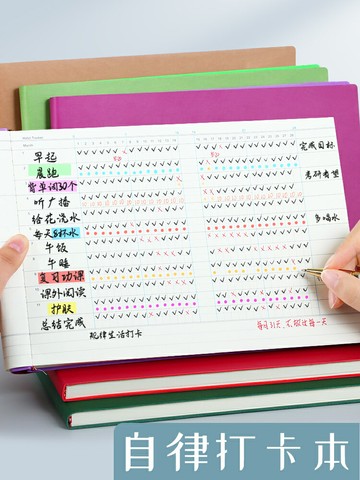 早起
完成目标
晨跑
背单词30个
考研有望
听广播
给花浇水
多喝水
每天8杯水
午饭
午睡
复习功课
课外阅读
护肤
总结完成
规律生活打卡
自律打卡本